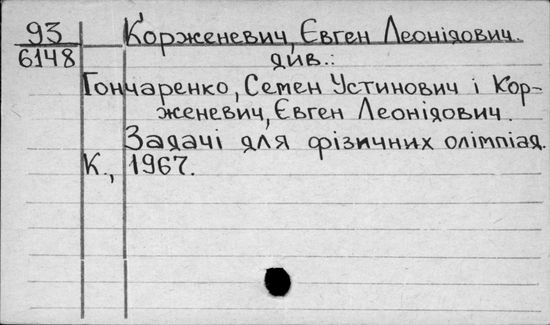 93 Корженевич, Євген Леонідович.
6148 див.:
Гончаренко, Семен Устинович і Кор-
женевич, Євген Леонідович.
Задачі для фізичних олімпіад.
К., 1967.